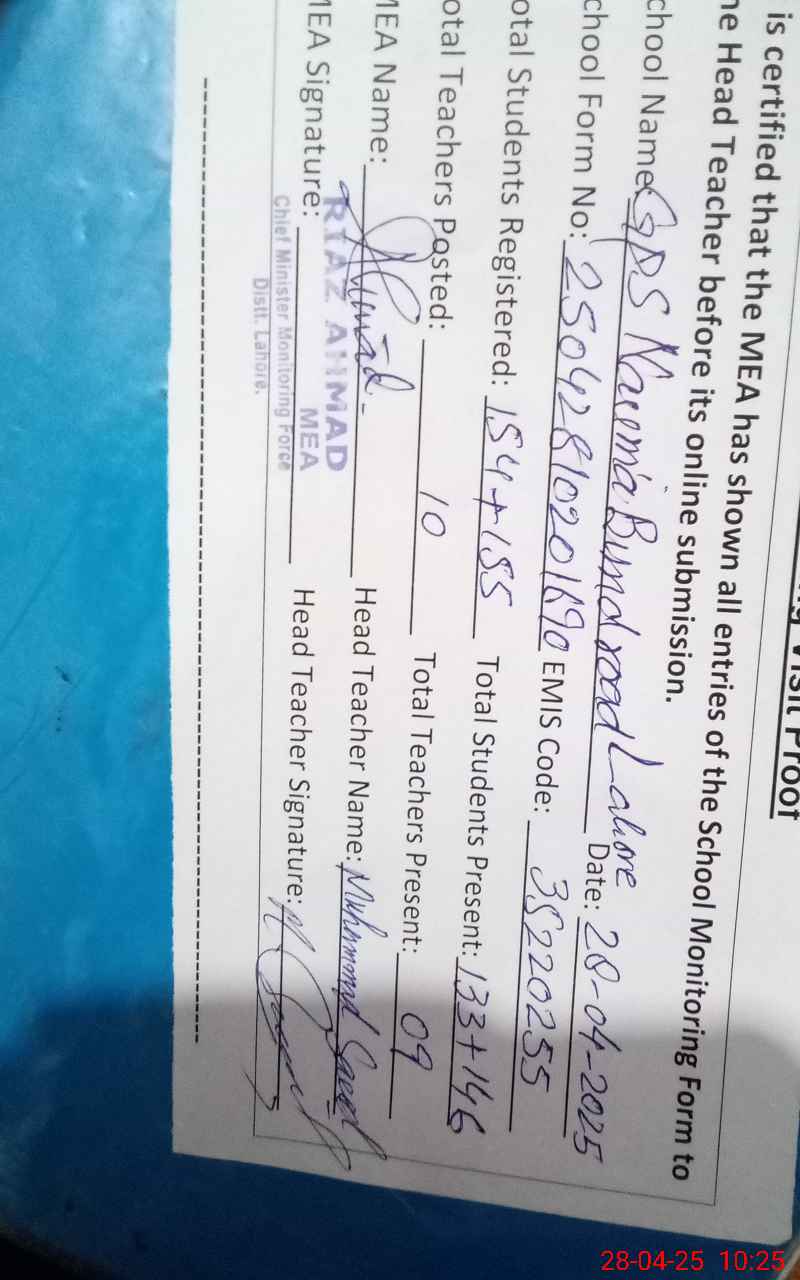 ng Visit Proof
is certified that the MEA has shown all entries of the School Monitoring Form to
he Head Teacher before its online submission.
chool Name: GPS Naeema Bund road Lahore Date: 28-04-2025
chool Form No: 25042810201690 EMIS Code: 35220255
otal Students Registered: 154+155 Total Students Present: 133+146
otal Teachers Posted: 10 Total Teachers Present: 09
MEA Name: Ahmad Head Teacher Name: Muhammad Saeed
MEA Signature: Head Teacher Signature:
RIAZ AHMAD
MEA
Chief Minister Monitoring Force
Distt. Lahore.
28-04-25 10:25